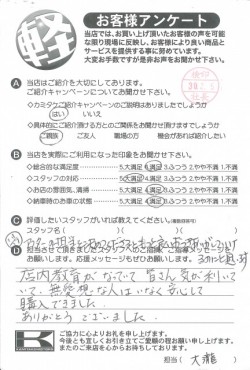 軽
お客様アンケート
当店では、お買い上げ頂いたお客様の声を可能
な限り現場に反映し、お客様により良い商品と
サービスを提供する事に努めています。
大変お手数ですが是非お声をお聞かせ下さい。
Ⓐ 当店はご紹介を大切にしております。
ご紹介キャンペーンについてお聞かせ下さい。
◇カミタウンご紹介キャンペーンのご説明はありましたでしょうか
はい いいえ
◇具体的にご紹介頂ける方とのご関係をお聞かせ下さい。
ご親族 ご友人 職場の方 機会があれば紹介したい
Ⓑ 当店を実際にご利用になった印象をお聞かせ下さい。
◇総合的な満足度 5.大満足 4.満足 3.ふつう 2.やや不満 1.不満
◇スタッフの対応 5.大満足 4.満足 3.ふつう 2.やや不満 1.不満
◇お店の雰囲気、清掃 5.大満足 4.満足 3.ふつう 2.やや不満 1.不満
◇納車時のお車の状態 5.大満足 4.満足 3.ふつう 2.やや不満 1.不満
Ⓒ 評価したいスタッフがいれば教えてください。(複数回答可)
スタッフ名( )
Ⓓ
願いします。応援メッセージもぜひお聞かせ下さい。
店内教育が なっていて 皆さん 気が利いて
いて、無愛想な人はいなく 安心して
購入できました。
ありがとうございました。
K
ご協力に心よりお礼を申し上げます。
今後とも宜しくお引き立てご愛顧の程お願い申し上げます。
またのご来店を心からお待ちしております。
担当( 大瀧 )